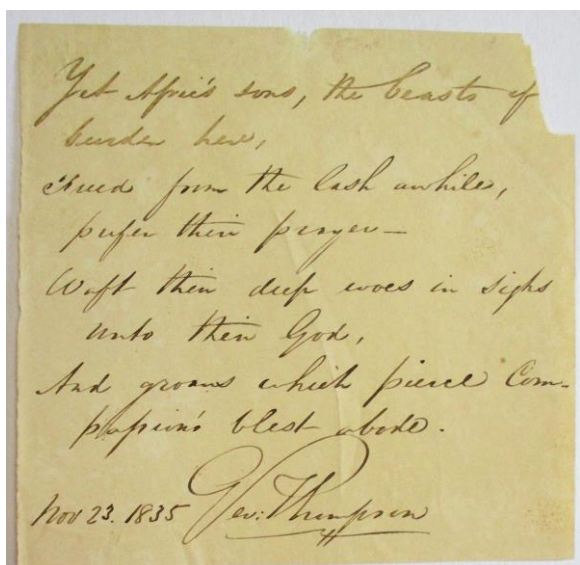 Yet Afric's sons, the beasts of
burden here,
Freed from the lash awhile,
prefer their prayer—
Waft their deep woes in sighs
unto their God,
And groans which pierce Com-
passion's blest abode.
Nov 23. 1835 Geo: Thompson